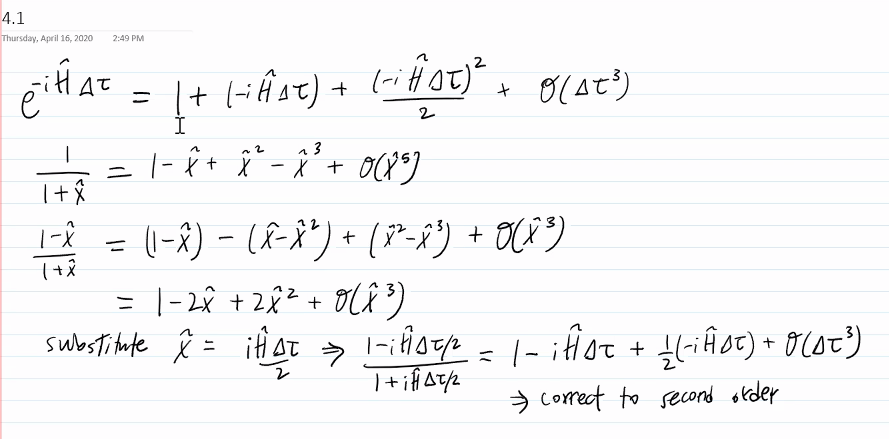 4.1
Thursday, April 16, 2020 2:49 PM
e^{-iĤΔτ} = 1 + (-iĤΔτ) + (-iĤΔτ)²/2 + O(Δτ³)
1/(1+x̂) = 1 - x̂ + x̂² - x̂³ + O(x̂⁵)
(1-x̂)/(1+x̂) = (1-x̂) - (x̂-x̂²) + (x̂²-x̂³) + O(x̂³)
= 1 - 2x̂ + 2x̂² + O(x̂³)
substitute x̂ = iĤΔτ/2 ⇒ (1-iĤΔτ/2)/(1+iĤΔτ/2) = 1 - iĤΔτ + ½(-iĤΔτ) + O(Δτ³)
⇒ correct to second order